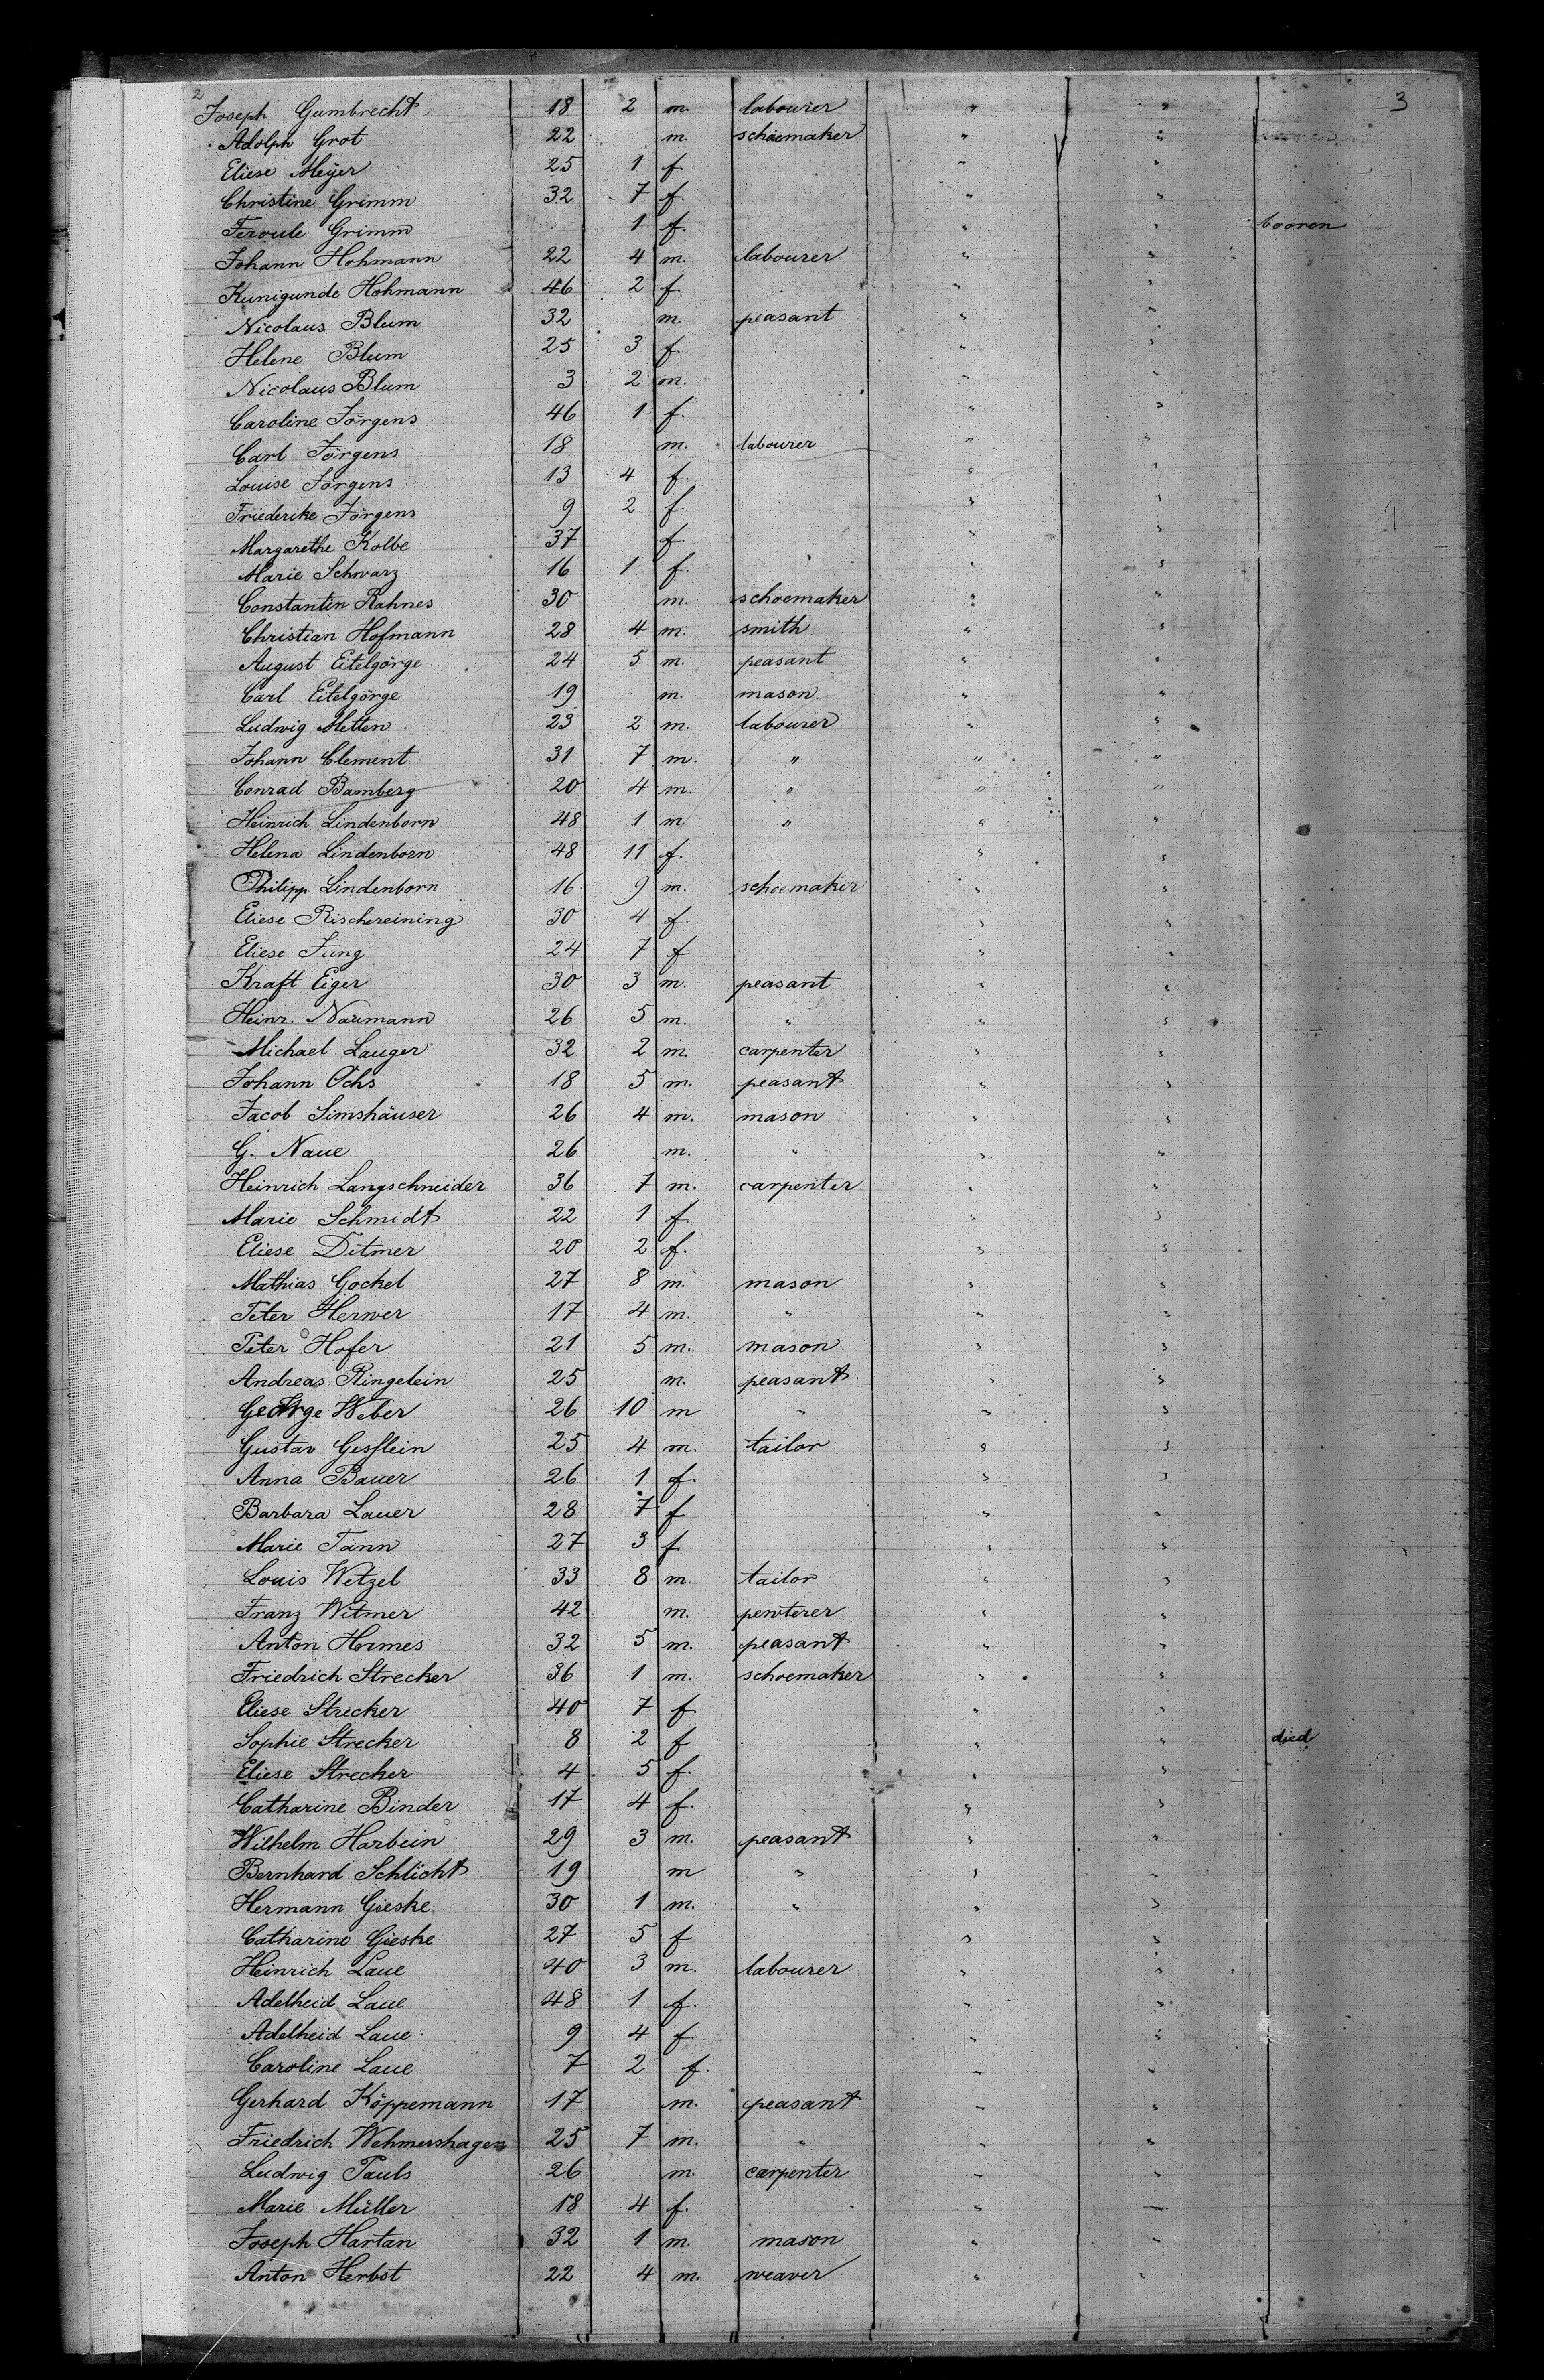 2 3
Joseph Gumbrecht 18 2 m. labourer " "
Adolph Grot 22 m. schoemaker " "
Eliese Meÿer 25 1 f " "
Christine Grimm 32 7 f. " "
Grimm 1 f. " " booren
Johann Hohmann 22 4 m. labourer " "
Kunigunde Hohmann 46 2 f. " "
Nicolaus Blum 32 m. peasant " "
Helene Blum 25 3 f " "
Nicolaus Blum 3 2 m. " "
Caroline Jörgens 46 1 f. " "
Carl Jörgens 18 m. labourer " "
Louise Jörgens 13 4 f. " "
Friederike Jörgens 9 2 f. " "
Margarethe Kolbe 37 f. " "
Marie Schwarz 16 1 f. " "
Constantin Rahnes 30 m. schoemaker " "
Christian Hofmann 28 4 m. smith " "
August Eitelgörge 24 5 m. peasant " "
Carl Eitelgörge 19 m. mason " "
Ludwig Metten 23 2 m. labourer " "
Johann Clement 31 7 m. " " "
Conrad Bamberg 20 4 m. " " "
Heinrich Lindenborn 48 1 m. " " "
Helena Lindenborn 48 11 f. " "
Philipp Lindenborn 16 9 m. schoemaker " "
Eliese Rischereining 30 4 f. " "
Eliese Jung 24 7 f " "
Kraft Eiger 30 3 m. peasant " "
Heinr. Naumann 26 5 m. " " "
Michael Lauger 32 2 m. carpenter " "
Johann Ochs 18 5 m. peasant " "
Jacob Simshäuser 26 4 m. mason " "
G. Naue 26 m. " " "
Heinrich Langschneider 36 7 m. carpenter " "
Marie Schmidt 22 1 f. " "
Eliese Ditmer 20 2 f. " "
Mathias Gockel 27 8 m. mason " "
Peter Herwer 17 4 m. " " "
Peter Hofer 21 5 m. mason " "
Andreas Ringelein 25 m. peasant " "
George Weber 26 10 m " " "
Gustav Gesslein 25 4 m. tailor " "
Anna Bauer 26 1 f. " "
Barbara Lauer 28 7 f " "
Marie Tann 27 3 f. " "
Louis Wetzel 33 8 m. tailor " "
Franz Witmer 42 m. pewterer " "
Anton Hermes 32 5 m. peasant " "
Friedrich Strecker 36 1 m. schoemaker " "
Eliese Strecker 40 7 f. " "
Sophie Strecker 8 2 f " " died
Eliese Strecker 4 5 f. " "
Catharine Binder 17 4 f. " "
Wilhelm Harbein 29 3 m. peasant " "
Bernhard Schlicht 19 m " " "
Hermann Gieske 30 1 m. " " "
Catharine Gieske 27 5 f " "
Heinrich Laue 40 3 m. labourer " "
Adelheid Laue 48 1 f. " "
Adelheid Laue 9 4 f. " "
Caroline Laue 7 2 f. " "
Gerhard Köppemann 17 m. peasant " "
Friedrich Wehmershagen 25 7 m. " " "
Ludwig Pauls 26 m. carpenter " "
Marie Müller 18 4 f. " "
Joseph Hartan 32 1 m. mason " "
Anton Herbst 22 4 m. weaver " "